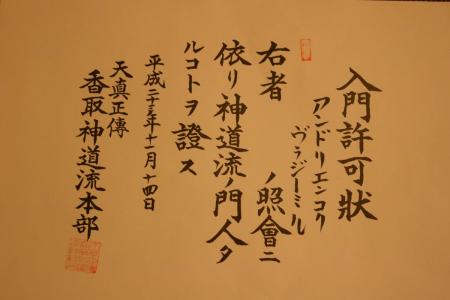 入門許可狀
アンドリエンコ
ヴラジーミル
右者　　ノ照會ニ
依リ神道流ノ門人タ
ルコトヲ證ス
平成二十三年十一月十四日
天真正傳
香取神道流本部